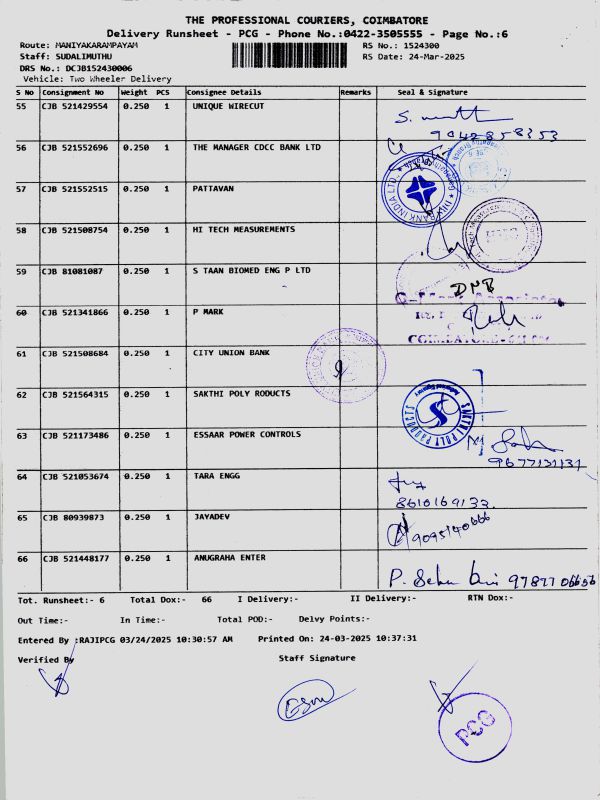 THE PROFESSIONAL COURIERS, COIMBATORE
Delivery Runsheet - PCG - Phone No.:0422-3505555 - Page No.:6
Route: MANIYAKARAMPAYAM RS No.: 1524300
Staff: SUDALIMUTHU RS Date: 24-Mar-2025
DRS No.: DCJB152430006
Vehicle: Two Wheeler Delivery
S No Consignment No Weight PCS Consignee Details Remarks Seal & Signature
55 CJB 521429554 0.250 1 UNIQUE WIRECUT
9042858353
56 CJB 521552696 0.250 1 THE MANAGER CDCC BANK LTD
57 CJB 521552515 0.250 1 PATTAVAN
58 CJB 521508754 0.250 1 HI TECH MEASUREMENTS
59 CJB 81081087 0.250 1 S TAAN BIOMED ENG P LTD
60 CJB 521341866 0.250 1 P MARK
61 CJB 521508684 0.250 1 CITY UNION BANK
62 CJB 521564315 0.250 1 SAKTHI POLY RODUCTS
SAKTHI POLY PRODUCTS
63 CJB 521173486 0.250 1 ESSAAR POWER CONTROLS
9677131131
64 CJB 521053674 0.250 1 TARA ENGG
8610169133
65 CJB 80939873 0.250 1 JAYADEV
9095140666
66 CJB 521448177 0.250 1 ANUGRAHA ENTER
Tot. Runsheet:- 6 Total Dox:- 66 I Delivery:- II Delivery:- RTN Dox:-
Out Time:- In Time:- Total POD:- Delvy Points:-
Entered By :RAJIPCG 03/24/2025 10:30:57 AM Printed On: 24-03-2025 10:37:31
Verified By Staff Signature
PCG